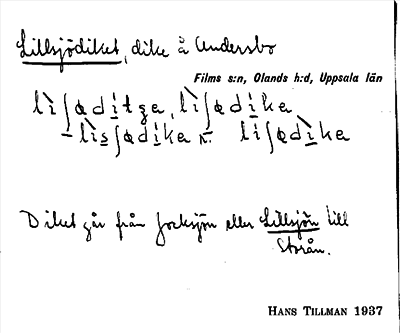 Lillsjödiket, dike å Andersbo
Films s:n, Olands h:d, Uppsala län
Diket går från Jocksjön eller Lillsjön till
Storån.
HANS TILLMAN 1937